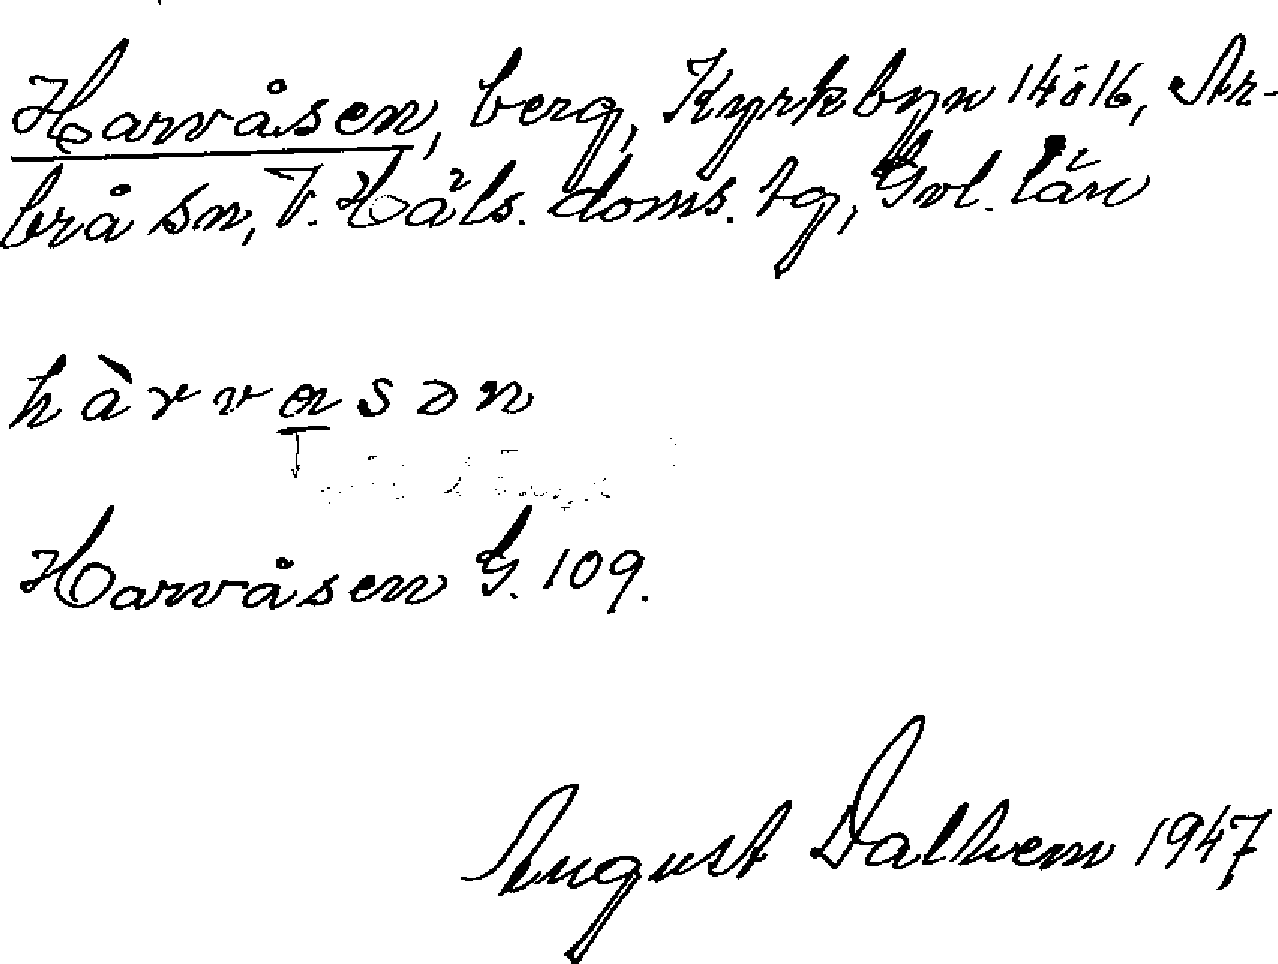 Harvåsen, berg, Kyrkbyn 14 o 16, Ar-
brå sn, V. Häls. doms. tg, Gvl. län
hàrvasən
Harvåsen G. 109.
August Dalhem 1947